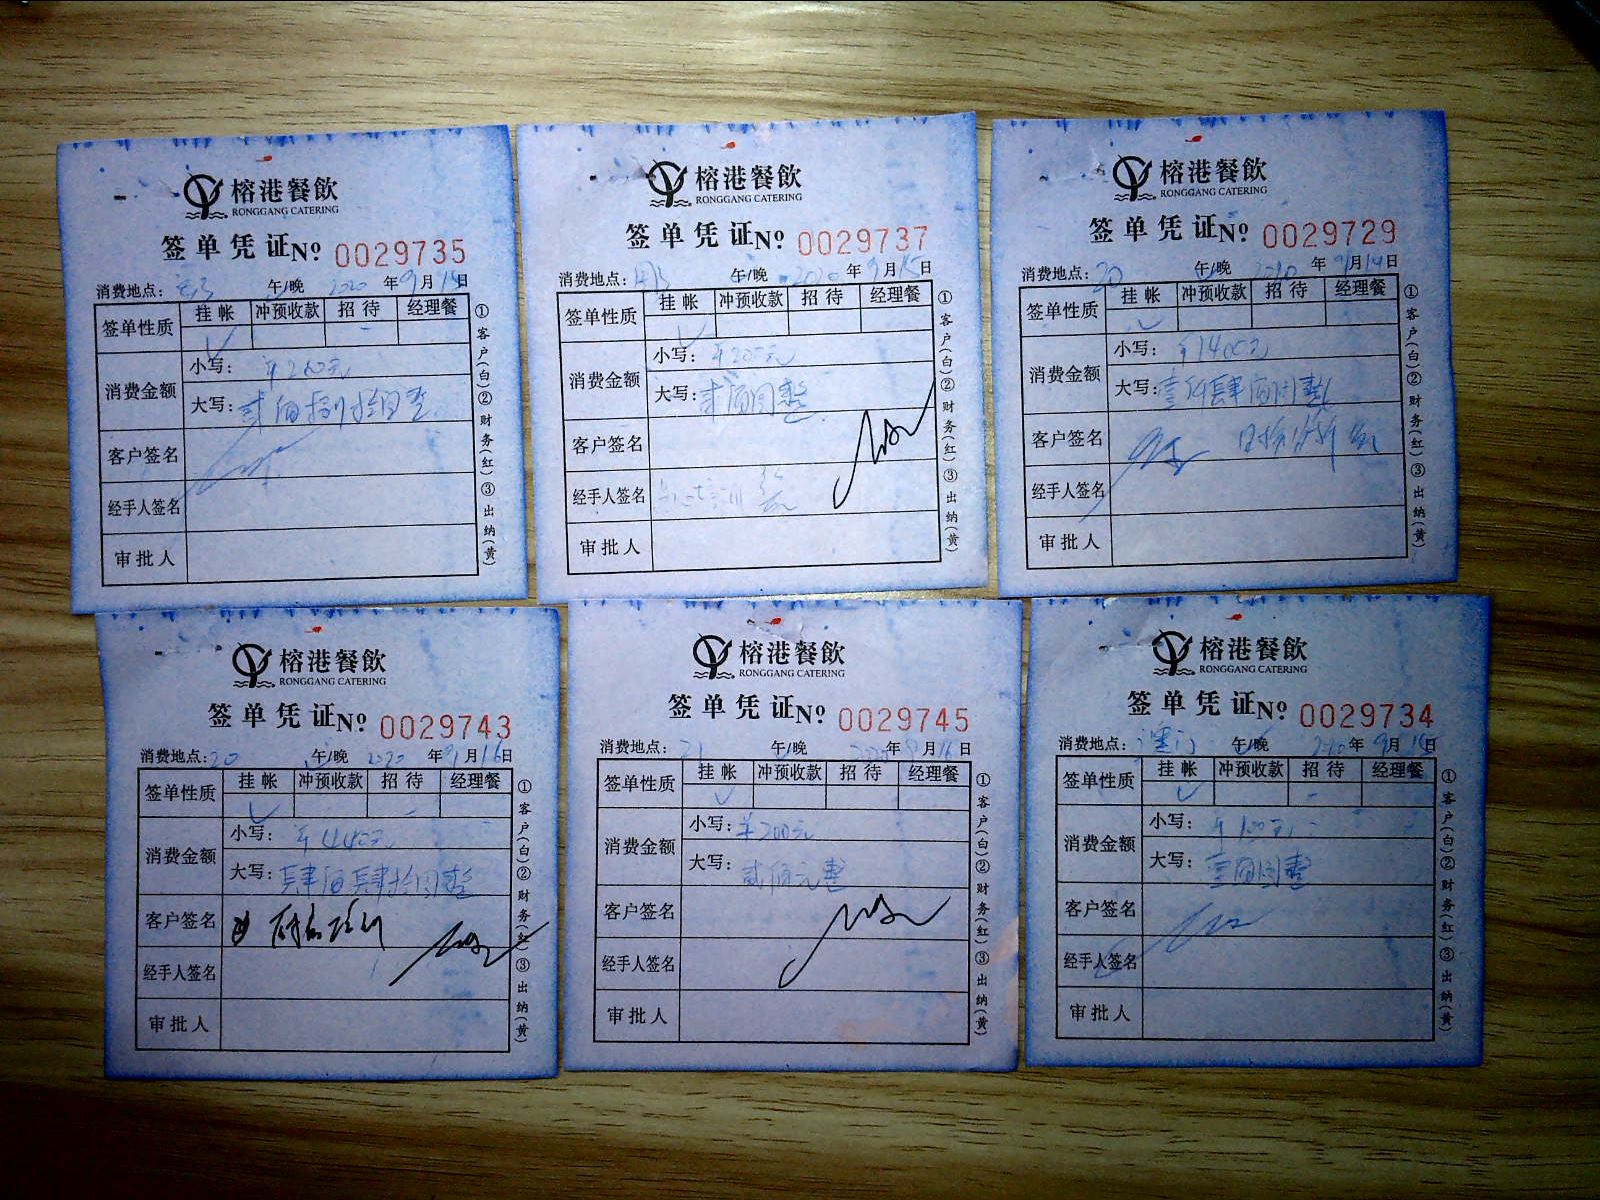 榕港餐飲
RONGGANG CATERING
签单凭证No 0029735
消费地点: 午/晚 2020 年 9 月 日
签单性质 挂帐 冲预收款 招待 经理餐
消费金额 小写: ¥260元
大写: 贰佰 拾圆整
客户签名
经手人签名
审批人
①客户(白)②财务(红)③出纳(黄)
榕港餐飲
RONGGANG CATERING
签单凭证No 0029737
消费地点: 午/晚 2020 年 9 月 15 日
签单性质 挂帐 冲预收款 招待 经理餐
消费金额 小写: ¥200元
大写: 贰佰圆整
客户签名
经手人签名
审批人
①客户(白)②财务(红)③出纳(黄)
榕港餐飲
RONGGANG CATERING
签单凭证No 0029729
消费地点: 20 午/晚 2020 年 9 月 14 日
签单性质 挂帐 冲预收款 招待 经理餐
消费金额 小写: ¥1400元
大写: 壹仟肆佰圆整
客户签名
经手人签名
审批人
①客户(白)②财务(红)③出纳(黄)
榕港餐飲
RONGGANG CATERING
签单凭证No 0029743
消费地点: 20 午/晚 2020 年 9 月 16 日
签单性质 挂帐 冲预收款 招待 经理餐
消费金额 小写: ¥440元
大写: 肆佰肆拾圆整
客户签名
经手人签名
审批人
①客户(白)②财务(红)③出纳(黄)
榕港餐飲
RONGGANG CATERING
签单凭证No 0029745
消费地点: 21 午/晚 2020 年 9 月 16 日
签单性质 挂帐 冲预收款 招待 经理餐
消费金额 小写: ¥200元
大写: 贰佰元整
客户签名
经手人签名
审批人
①客户(白)②财务(红)③出纳(黄)
榕港餐飲
RONGGANG CATERING
签单凭证No 0029734
消费地点: 澳门 午/晚 2020 年 9 月 15 日
签单性质 挂帐 冲预收款 招待 经理餐
消费金额 小写: ¥100元
大写: 壹佰圆整
客户签名
经手人签名
审批人
①客户(白)②财务(红)③出纳(黄)